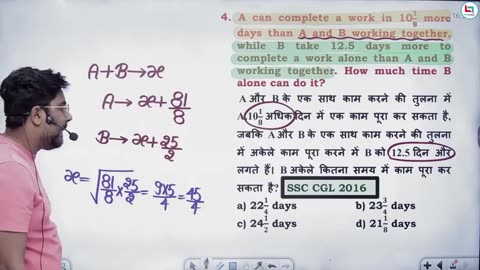 4. A can complete a work in 10 1/8 more
days than A and B working together,
while B take 12.5 days more to
complete a work alone than A and B
working together. How much time B
alone can do it?
A और B के एक साथ काम करने की तुलना में
A 10 1/8 अधिक दिन में एक काम पूरा कर सकता है,
जबकि A और B के एक साथ काम करने की तुलना
में अकेले काम पूरा करने में B को 12.5 दिन और
लगते हैं। B अकेले कितना समय में काम पूरा कर
सकता है? SSC CGL 2016
a) 22 1/4 days b) 23 3/4 days
c) 24 1/2 days d) 21 1/8 days
A+B→x
A→x+81/8
B→x+25/2
x=√81/8×25/2=9×5/4=45/4